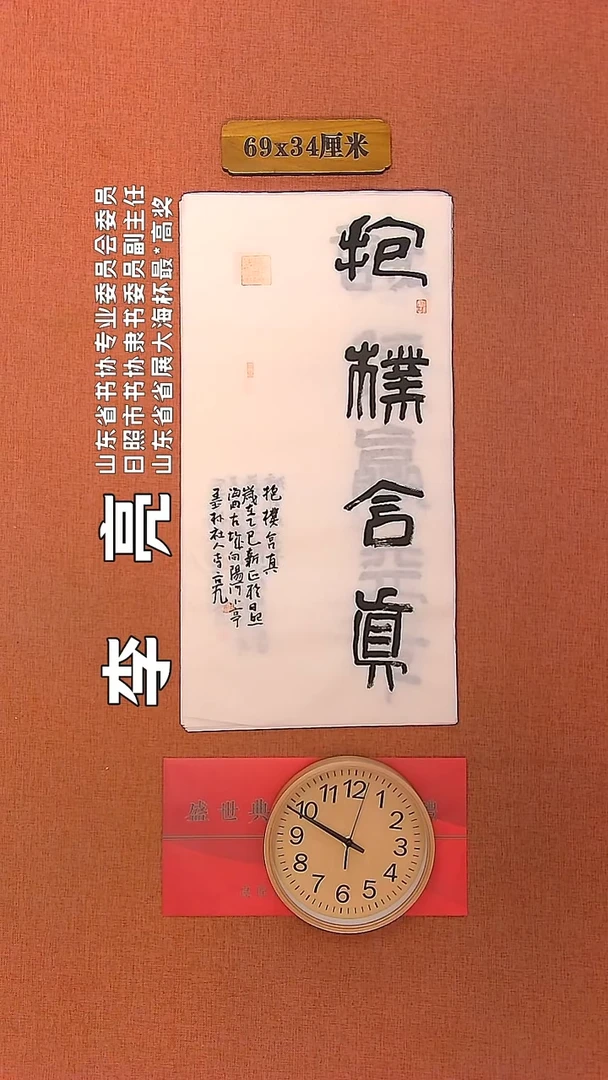 69x34厘米
山东省书协专业委员会委员
日照市书协隶书委员副主任
山东省省展大海杯最*高奖
李 亮
抱樸含真
抱樸含真
歲在乙巳新正於日照
海曲古城向陽河小亭
墨林社人李
盛世典
12 1 2 3 4 5 6 7 8 9 10 11